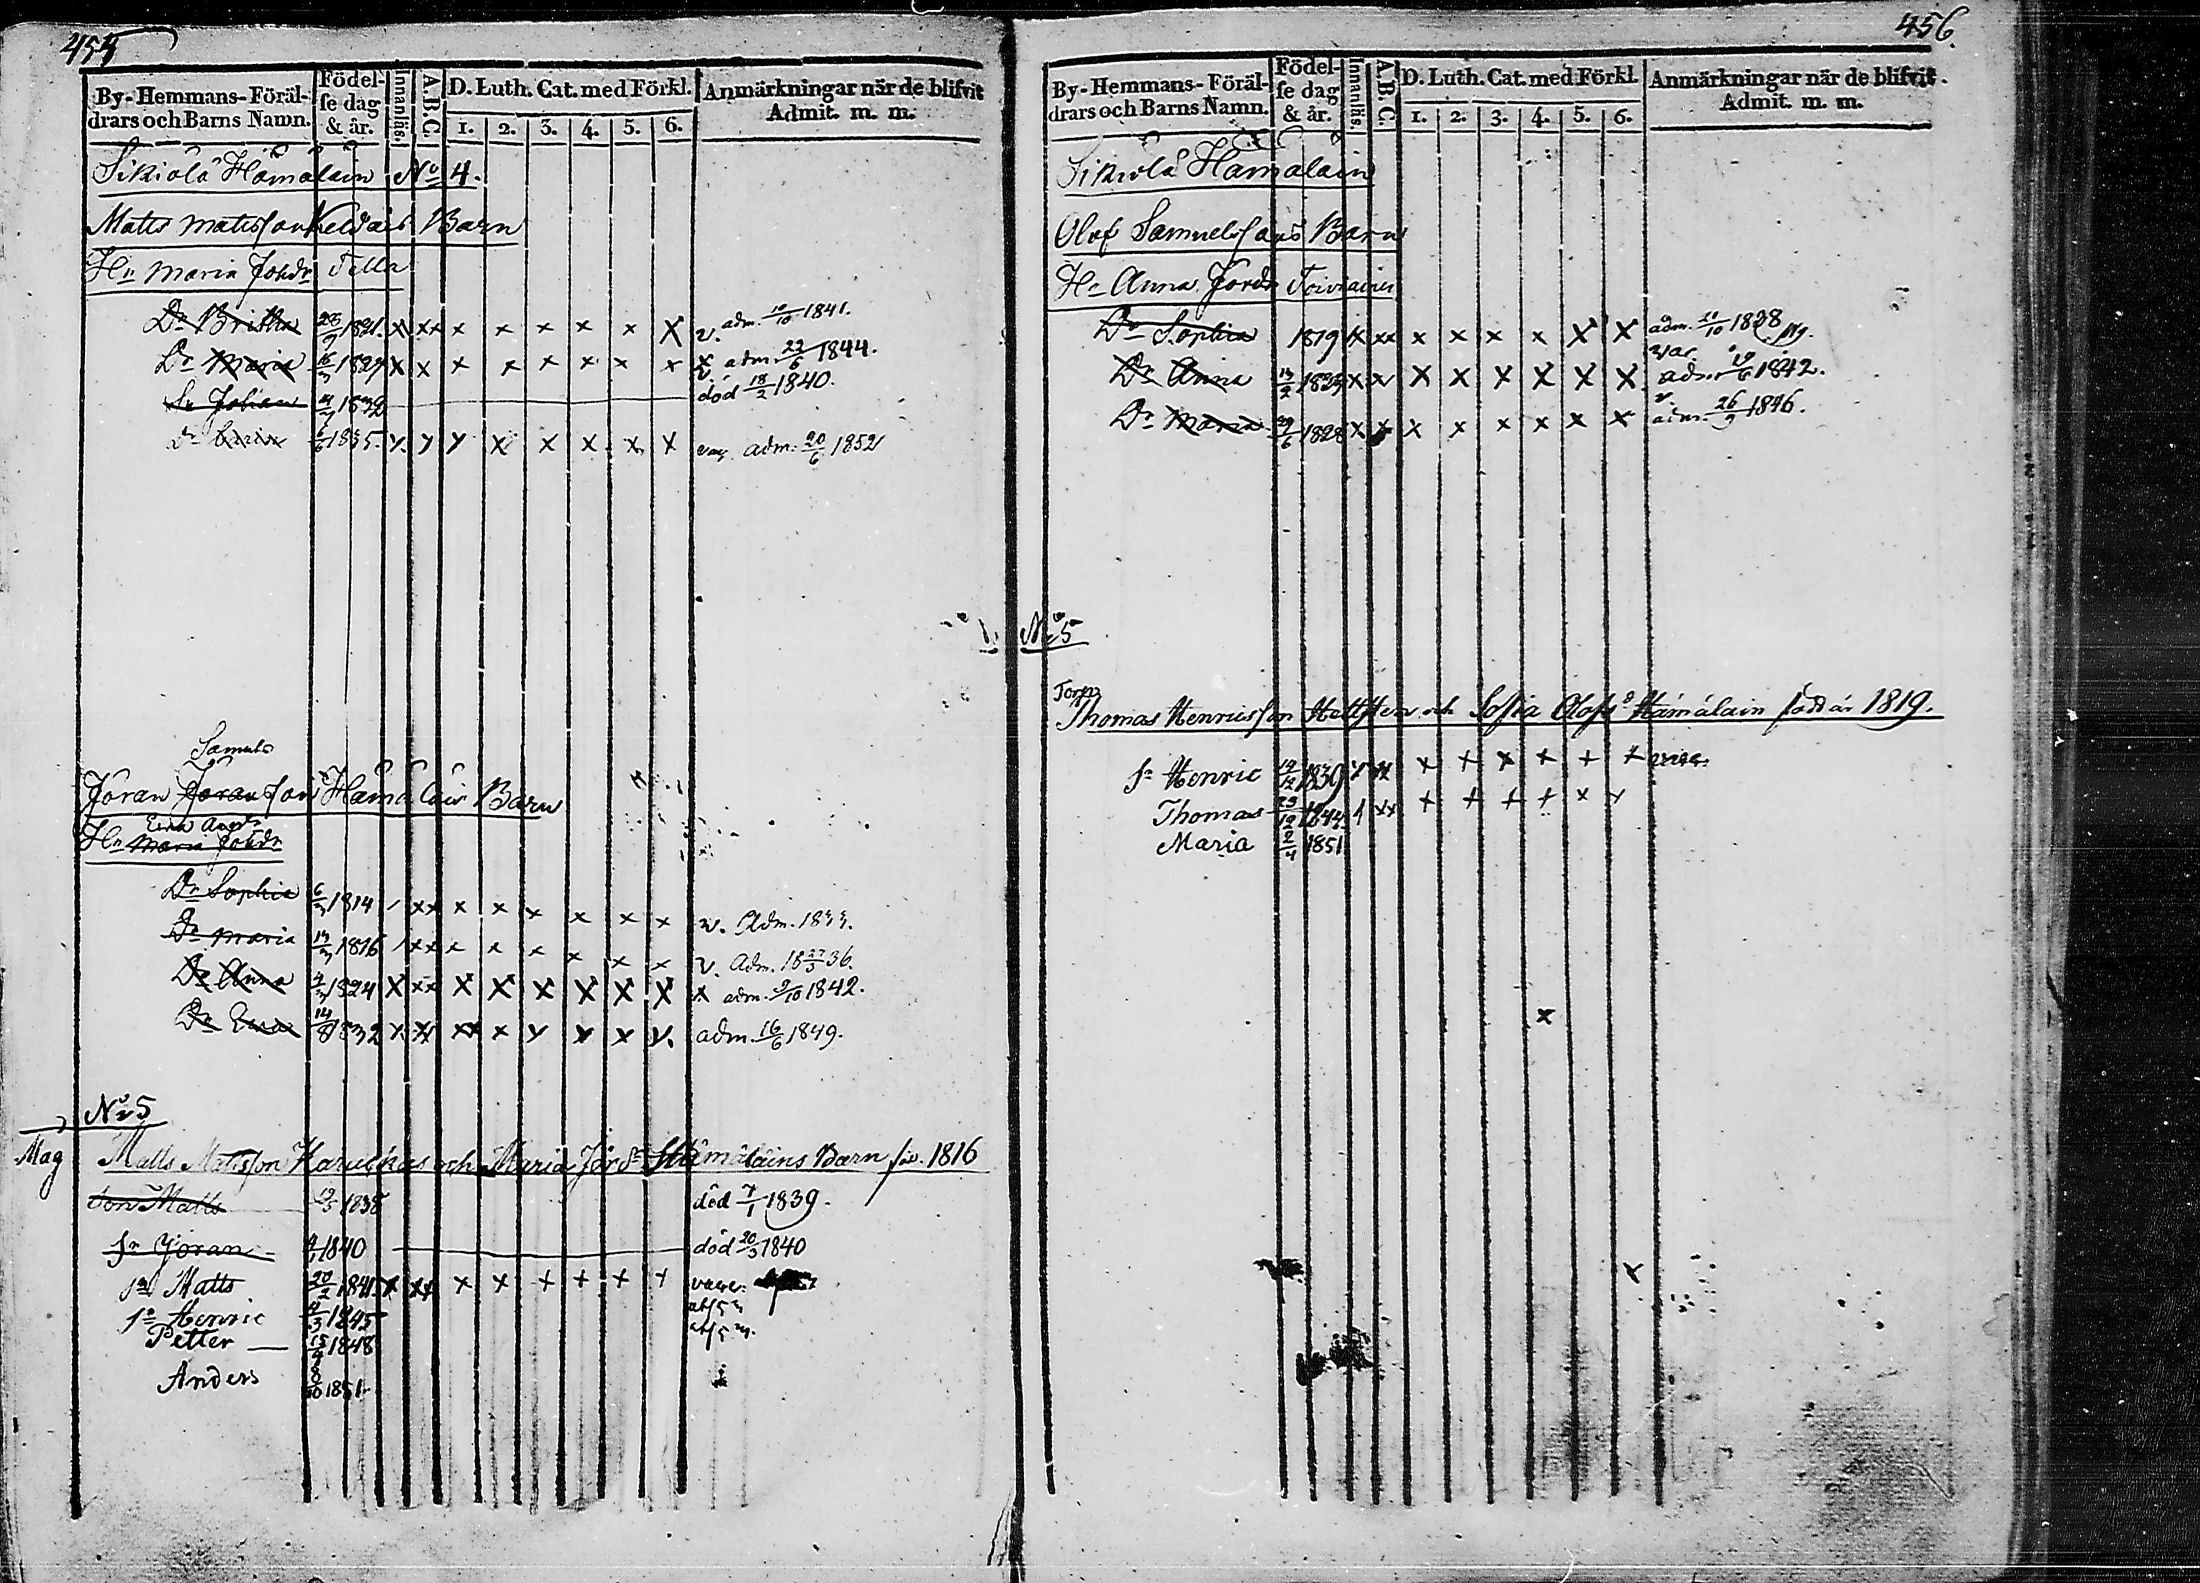 455
By-Hemmans-Föräl-
drars och Barns Namn.
Födel-
se dag
& år.
Innanläs.
A.B.C.
D. Luth. Cat. med Förkl.
1. 2. 3. 4. 5. 6.
Anmärkningar när de blifvit
Admit. m. m.
Sikiölä Hämäläin No 4.
Matts Matsson Barn
Hu Maria Johdr Tella
Dr Britha 1821. x xx x x x x x x v. adm. 10/10 1841.
Dr Maria 1827 x x x x x x x x adm. 23/6 1844.
Sn Johan död 18/2 1840.
Dr 6/6 1835. x. y y x x x x x adm. 20/6 1852
Samuels
Jöran Jöransson Hämäläis Barn
Hu Maria Johdr
Dr Sophia 6/3 1814 xx x x x x x x v. Adm. 1833.
Dr Maria 13/3 1816 xx x x x x x x v. Adm. 18 27/3 36.
Dr Anna 4/3 1824 x xx x x x x x x x adm. 9/10 1842.
Dr Eva 14/8 1832 x xx xx x y x x y. adm. 16/6 1849.
No 5
Mag
Matts Matsson Karuckas och Maria Jör dr Hämäläins Barn 1816
Son Matts 1838 död 7/1 1839.
Sn Jöran 1840 död 20/3 1840
Sn Matts 20/2 1841 x xx x x + + + +
Sn Henric 1845
Petter — 15/9 1848
Anders 8/10 1851
456.
By-Hemmans-Föräl-
drars och Barns Namn.
Födel-
se dag
& år.
Innanläs.
A.B.C.
D. Luth. Cat. med Förkl.
1. 2. 3. 4. 5. 6.
Anmärkningar när de blifvit
Admit. m. m.
Sikiölä Hämäläin
Olof Samuelssons Barn
Hu Anna Jördr Toiviainen
Dr Sophia 1819 x xx x x x x x x adm. 1838
Dr Anna x x x x x x x x adm. 1842.
v.
Dr Maria 29/6 1828 x x x x x x x x adm. 26/9 1846.
No 5
Torp.
Thomas Henricsson Hellsten och Sofia Olofs dr Hämäläin född år 1819.
Sn Henric 19/12 1839 x x x + x + + +
Thomas 23/12 1844 xx + + + + x +
Maria 2/4 1851
x
x